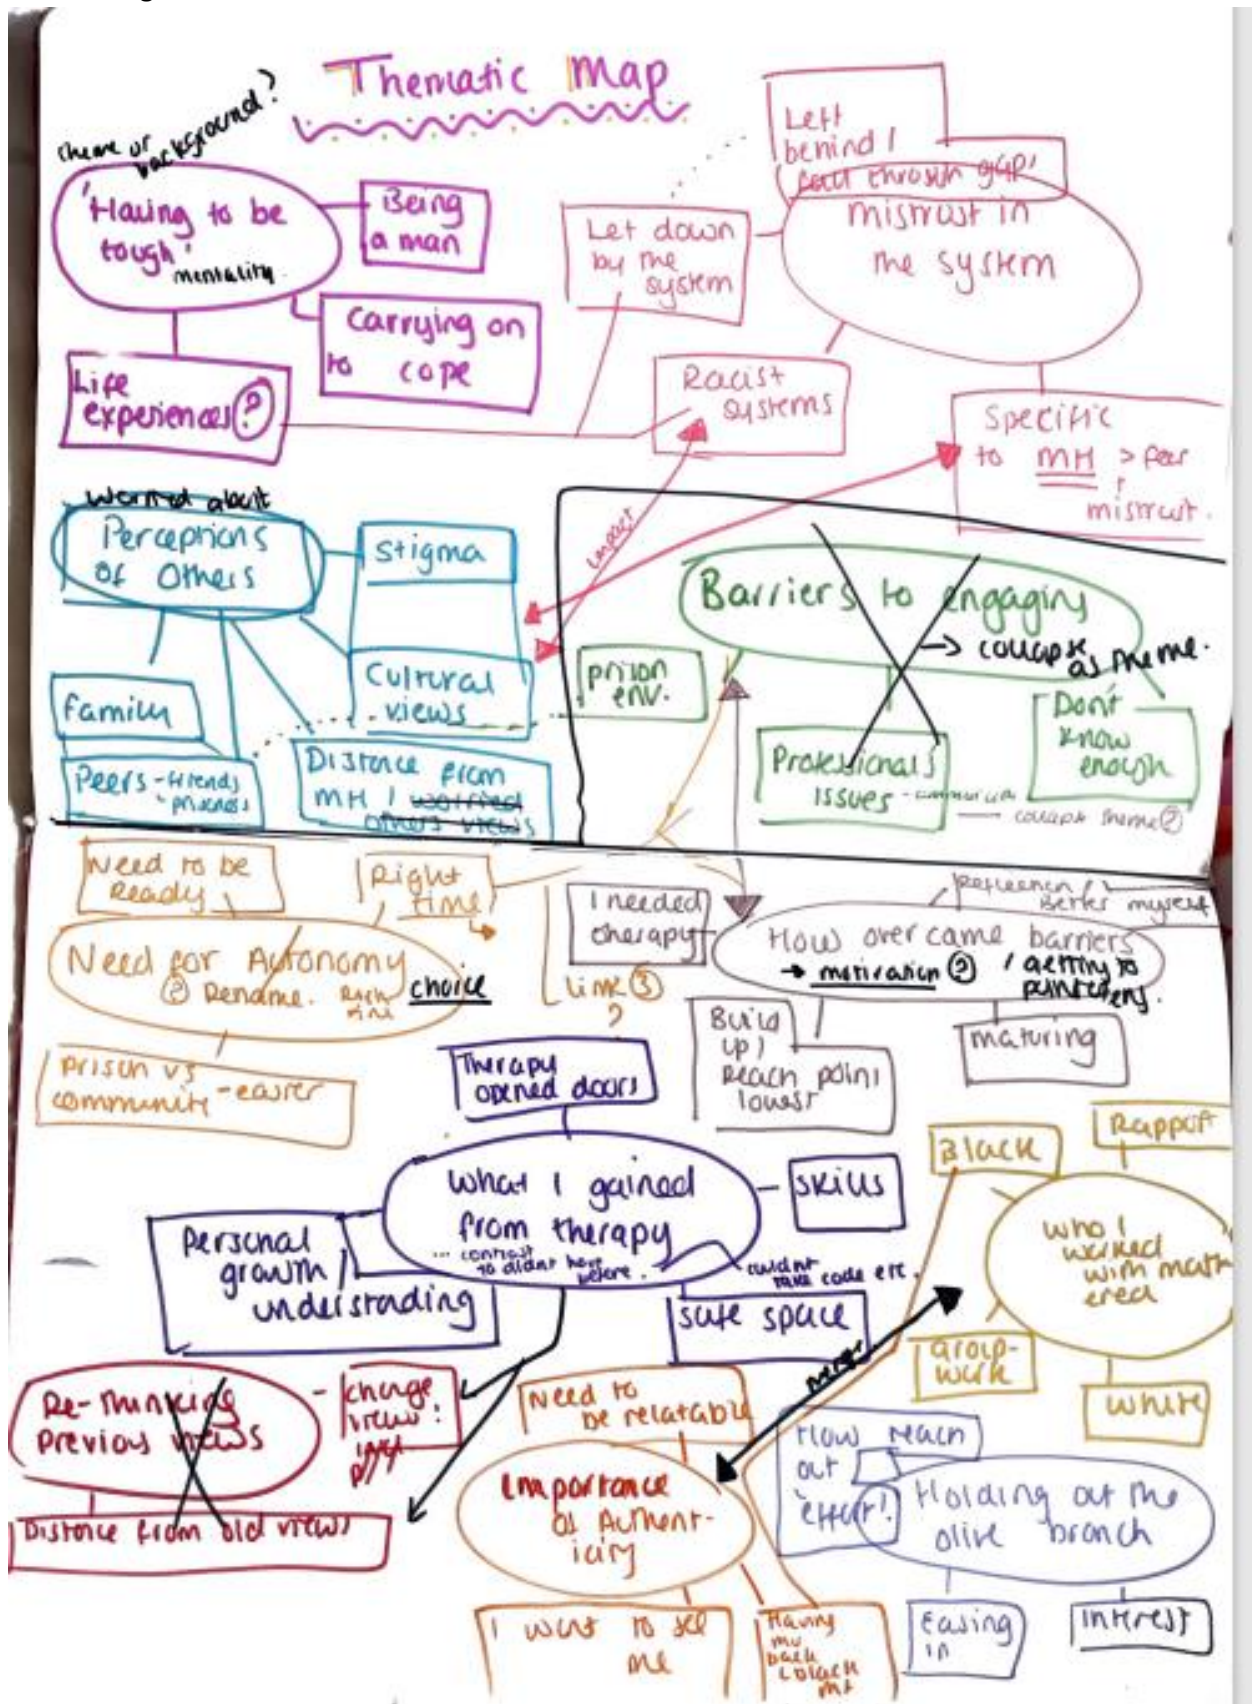 Thematic Map
theme or
background?
'Having to be
tough'
mentality.
Being
a man
Carrying on
to cope
Life
experiences ?
Left
behind /
fall through gap'
mistrust in
the system
Let down
by the
system
Racist
systems
Specific
to MH > fear
+
mistrust.
impact
worried about
Perceptions
of Others
Stigma
Cultural
views
family
Peers - friends
- prisoners
Distance from
MH / worried
others views
Barriers to engaging
→ collapse
as theme.
prison
env.
Professionals
issues - communication
collapse theme ?
Don't
know
enough
Need to be
Ready
Right
time
Need for Autonomy
? Rename.
choice
Link ?
prison vs
community - easier
I needed
therapy
Reflection /
Better myself
How overcame barriers
→ motivation ? / getting to
Build
up /
Reach point
lowest
maturing
Therapy
opened doors
What I gained
from therapy
... contrast
to didn't have
before.
skills
Personal
growth /
understanding
safe space
couldn't
take code etc.
Black
Rapport
who I
worked
with matt-
ered
Group-
work
white
merge
Re-thinking
previous views
change
views!
Distance from old views
Need to
be relatable
Importance
of Authent-
icity
I want to see
me
Having
my
back
(black
How reach
out
'effort'!
Holding out the
olive branch
Easing
in
Interest